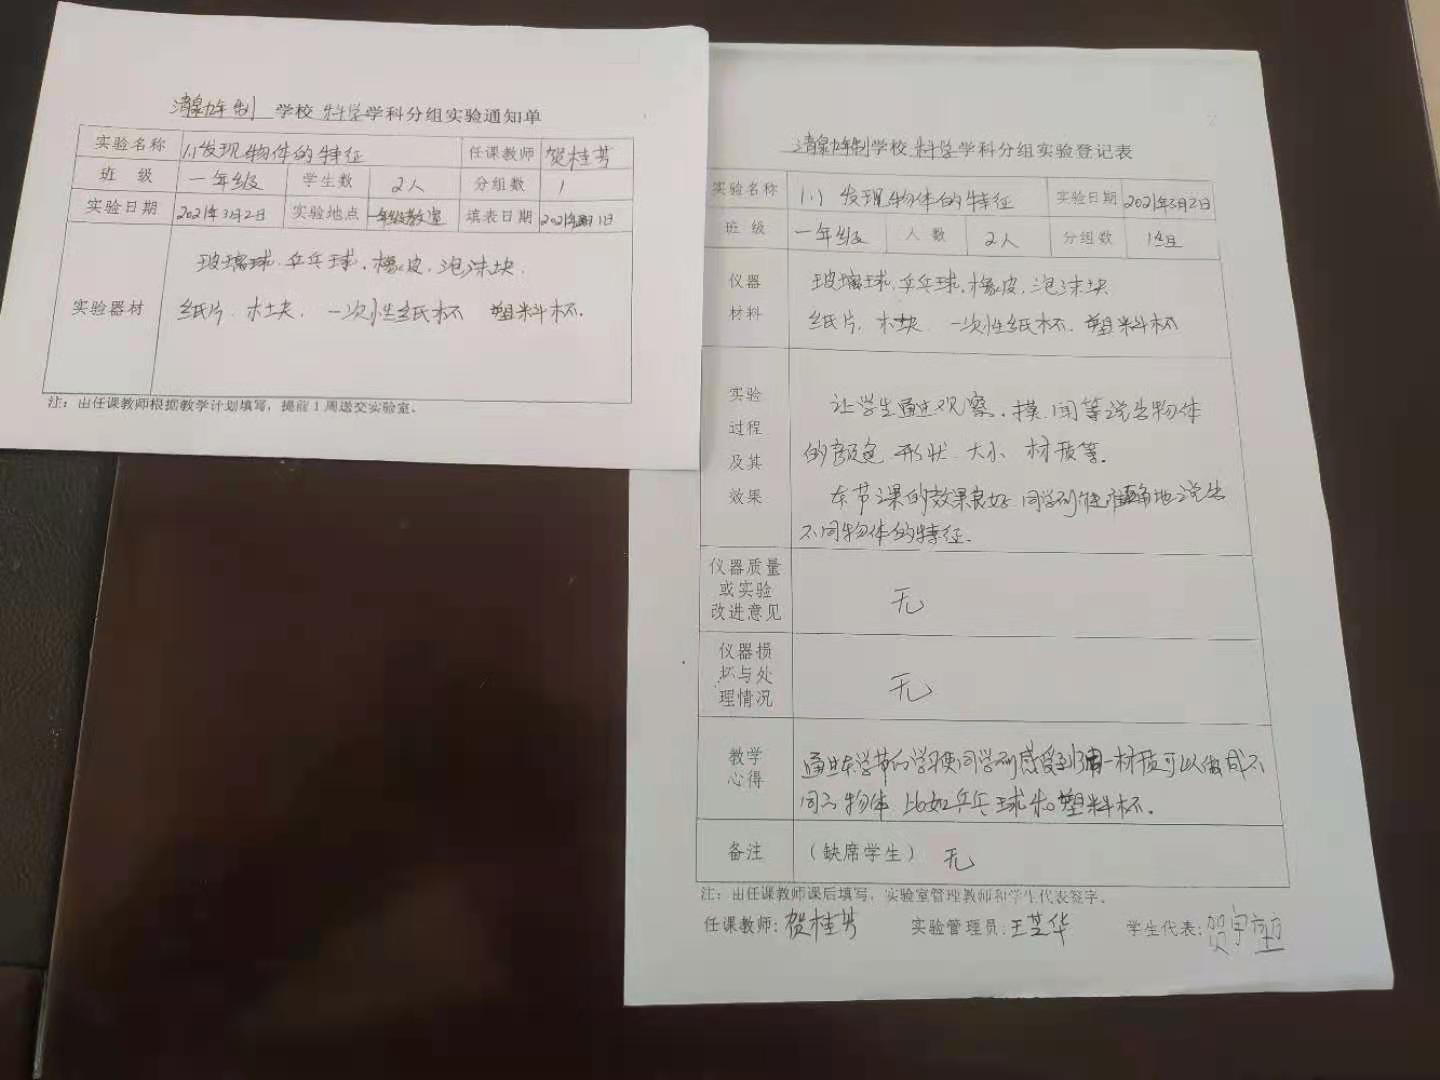 清泉九年制 学校 科学 学科分组实验通知单
实验名称 1.1发现物体的特征 任课教师 贺桂芳
班 级 一年级 学生数 2人 分组数 1
实验日期 2021年3月2日 实验地点 一年级教室 填表日期 2021年3月1日
玻璃球、乒乓球、橡皮、泡沫块、
实验器材 纸片、木块、一次性纸杯 塑料杯.
注:由任课教师根据教学计划填写,提前1周送交实验室。
清泉九年制学校 科学 学科分组实验登记表
实验名称 1.1 发现物体的特征 实验日期 2021年3月2日
班 级 一年级 人 数 2人 分组数 1组
仪器 玻璃球、乒乓球、橡皮、泡沫块
材料 纸片、木块、一次性纸杯、塑料杯
实验
过程
及其
效果
让学生通过观察、摸、闻等说出物体
的颜色 形状 大小 材质等.
本节课的效果良好 同学们能准确地说出
不同物体的特征.
仪器质量
或实验
改进意见
无
仪器损
坏与处
理情况
无
教学
心得
通过本节的学习使同学们感受到同一材质可以做成不
同的物体 比如乒乓球和塑料杯.
备注 (缺席学生) 无
注:由任课教师课后填写,实验室管理教师和学生代表签字。
任课教师:贺桂芳 实验管理员:王芝华 学生代表:贺宇